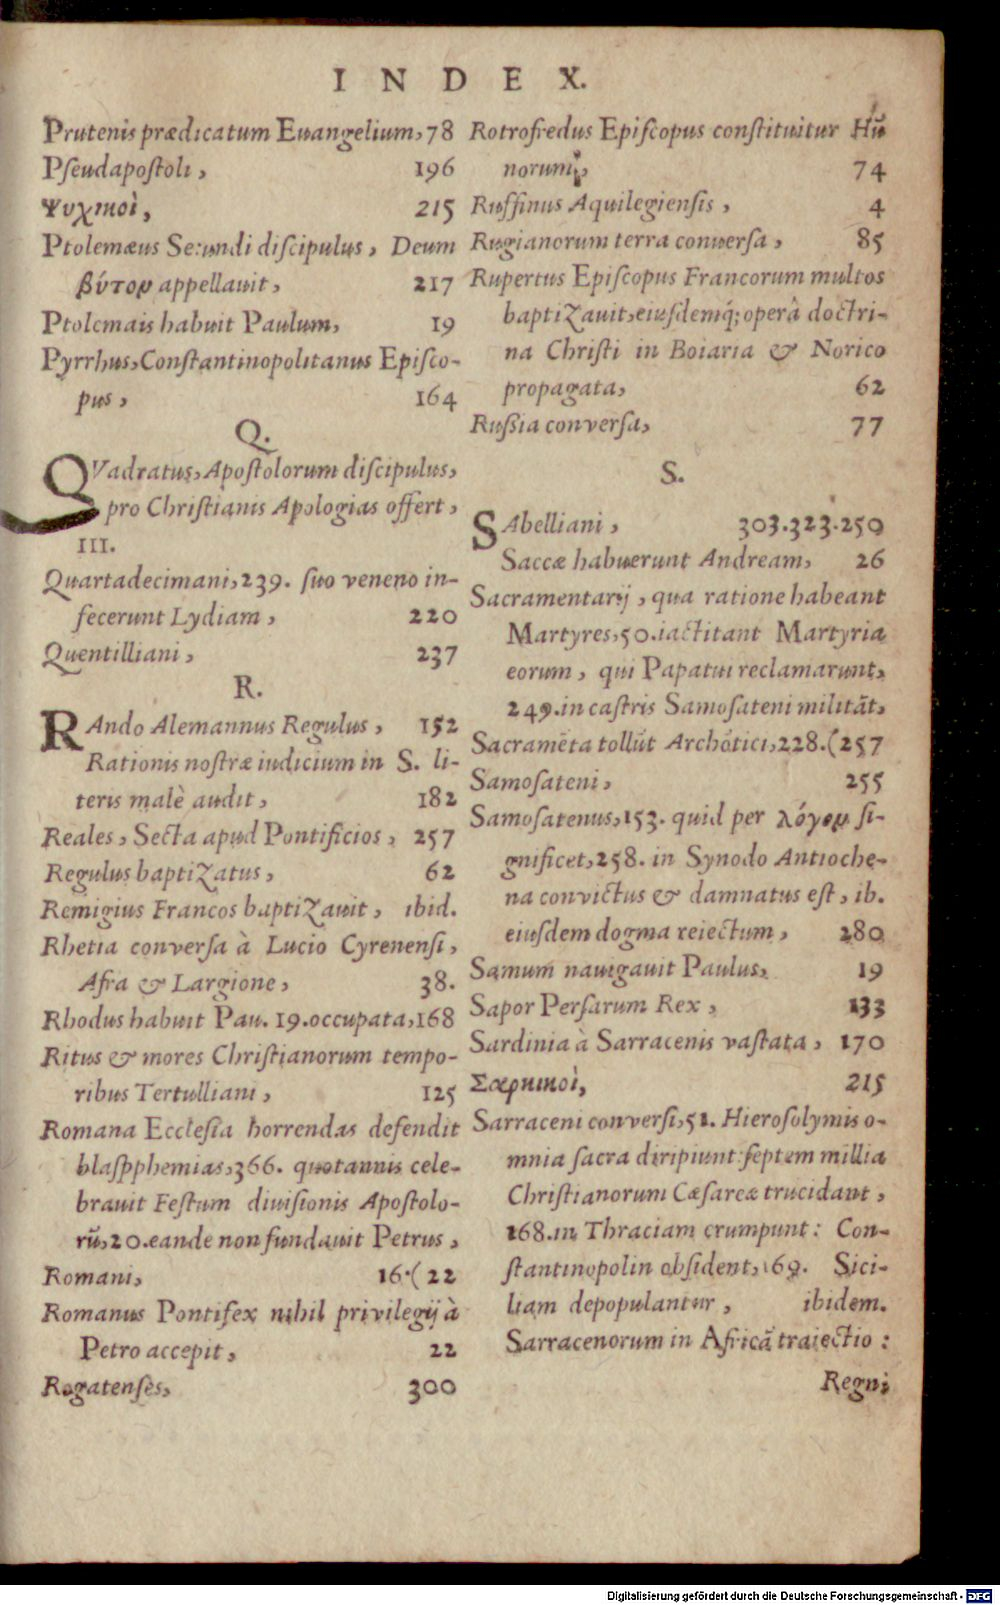 INDEX.
Prutenis prædicatum Euangelium, 78
Pseudapostoli, 196
Ψυχικοὶ, 215
Ptolemæus Secundi discipulus, Deum
βύτον appellauit, 217
Ptolemais habuit Paulum, 19
Pyrrhus, Constantinopolitanus Episco-
pus, 164
Q.
QVadratus, Apostolorum discipulus,
pro Christianis Apologias offert,
III.
Quartadecimani, 239. suo veneno in-
fecerunt Lydiam, 220
Quentilliani, 237
R.
RAndo Alemannus Regulus, 152
Rationis nostræ iudicium in S. li-
teris malè audit, 182
Reales, Secta apud Pontificios, 257
Regulus baptizatus, 62
Remigius Francos baptizauit, ibid.
Rhetia conversa à Lucio Cyrenensi,
Afra & Largione, 38.
Rhodus habuit Pau. 19. occupata, 168
Ritus & mores Christianorum tempo-
ribus Tertulliani, 125
Romana Ecclesia horrendas defendit
blaspphemias, 366. quotannis cele-
brauit Festum divisionis Apostolo-
rũ, 20. eande non fundauit Petrus,
Romani, 16. (22
Romanus Pontifex nihil privilegij à
Petro accepit, 22
Rogatenses, 300
Rotrofredus Episcopus constituitur Hũ
norum, 74
Ruffinus Aquilegiensis, 4
Rugianorum terra conuersa, 85
Rupertus Episcopus Francorum multos
baptizauit, eiusdemq́; operâ doctri-
na Christi in Boiaria & Norico
propagata, 62
Russia conversa, 77
S.
SAbelliani, 303. 323. 250
Saccæ habuerunt Andream, 26
Sacramentarij, qua ratione habeant
Martyres, 50. iactitant Martyria
eorum, qui Papatui reclamarunt,
249. in castris Samosateni militãt,
Sacramẽta tollũt Archõtici, 228. (257
Samosateni, 255
Samosatenus, 153. quid per λόγον si-
gnificet, 258. in Synodo Antioche-
na convictus & damnatus est, ib.
eiusdem dogma reiectum, 280
Samum nauigauit Paulus, 19
Sapor Persarum Rex, 133
Sardinia à Sarracenis vastata, 170
Σαρκικοὶ, 215
Sarraceni conversi, 51. Hierosolymis o-
mnia sacra diripiunt: septem millia
Christianorum Cæsareæ trucidant,
168. in Thraciam erumpunt: Con-
stantinopolin obsident, 169. Sici-
liam depopulantur, ibidem.
Sarracenorum in Africã traiectio:
Regni
Digitalisierung gefördert durch die Deutsche Forschungsgemeinschaft - DFG